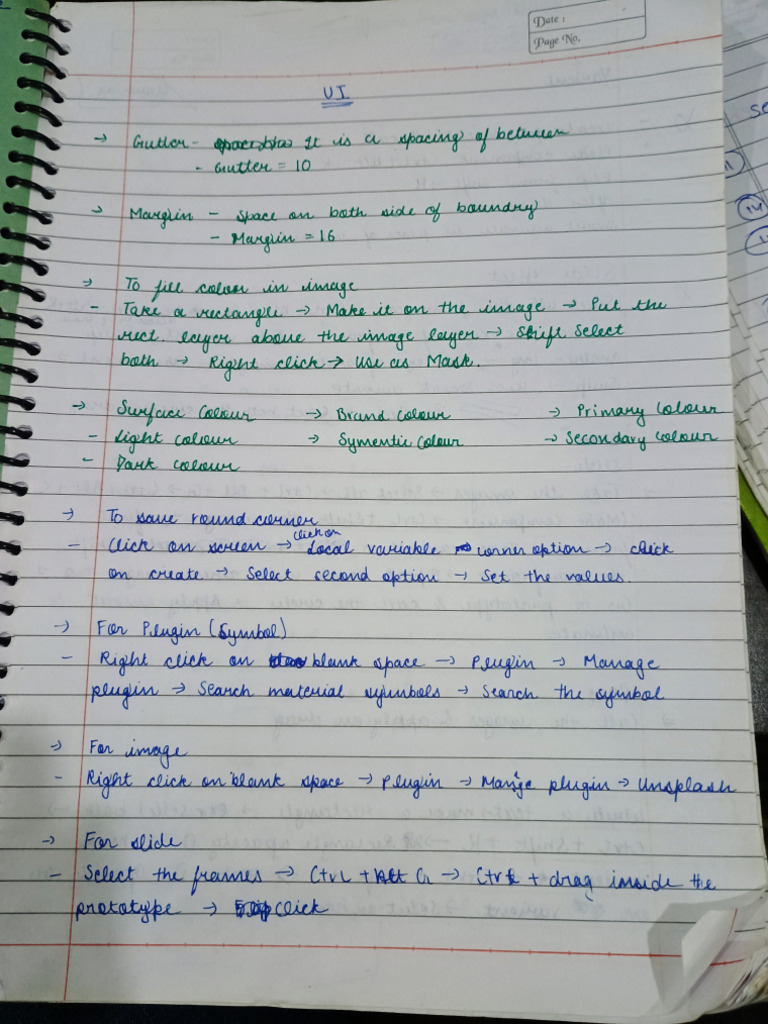 Date :
Page No.
UI
→ Gutter - It is a spacing of between
- Gutter = 10
→ Margin - Space on both side of boundry
- Margin = 16
→ To fill colour in image
- Take a rectangle → Make it on the image → Put the
rect. layer above the image layer → Shift Select
both → Right click → Use as Mask.
→ Surface Colour → Brand colour → Primary Colour
- Light colour → Symentic Colour → Secondary colour
- Dark colour
→ To save round corner
- Click on screen → Click on Local variable corner option → click
on create → Select second option → Set the values.
→ For Plugin (Symbol)
- Right click on blank space → Plugin → Manage
plugin → Search material symbols → Search the symbol
→ For image
- Right click on blank space → Plugin → Manage plugin → Unsplash
→ For slide
- Select the frames → Ctrl + Alt G → Ctrl + drag inside the
prototype → Click